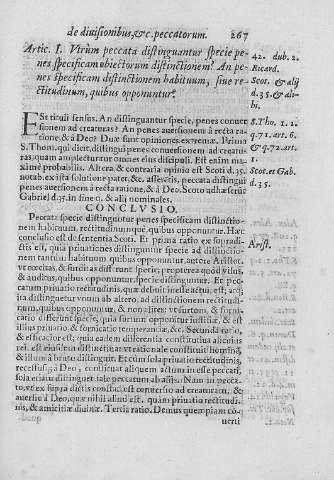 de diuisionibus, &c. peccatorum. 267
Artic. I. Vtrùm peccata distinguantur specie pe-
nes specificam obiectorum distinctionem? An pe-
nes specificam distinctionem habituum, siue re-
ctitudinum, quibus opponuntur?
42. dub. 2.
Ricard.
Scot. & alij
d. 35. & ali-
bi.
Est tituli sensus. An distinguantur specie, penes conuer
sionem ad creaturas? An penes auersionem à recta ra-
tione, & à Deo? Duæ sunt opiniones extremæ. Prima
S. Thom. qui dicit, distingui penes conuersionem ad creatu
ras, quam amplectuntur omnes eius discipuli. Est enim ma-
ximè probabilis. Altera, & contraria opinio est Scoti d. 35.
notab. ex ista solutione patet, &c. asseueris, peccata distingui
penes auersionem à recta ratione, & à Deo. Scoto adhæserūt
Gabriel d. 35. in fine q. & alij nominales.
S. Tho. 1. 2.
q. 72. art. 6.
& q. 72. art.
1.
Scot. et Gab.
d. 35.
CONCLVSIO.
Peccata specie distinguuntur penes specificam distinctio-
nem habituum, rectitudinumque, quibus opponuntur. Hæc
conclusio est de sententia Scoti. Et prima ratio ex suprad-
ictis est, quia priuationes distinguuntur specie ad distinctio-
nem tantum habituum quibus opponuntur, autore Aristot.
vt cæcitas, & surditas differunt specie, propterea quod visus,
& auditus, quibus opponuntur, specie distinguuntur. Et pec-
catum priuatio rectitudinis, quæ debuit inesse actui, est; ac
ita distinguetur vnum ab altero, ad distinctionem rectitudi-
num, quibus opponuntur, & non aliter: vt furtum, & forni-
catio differunt specie, quia furtum opponitur iustitiæ, & est
illius priuatio, & fornicatio temperantiæ, &c. Secunda ratio,
& efficacior est; quia eadem differentia constitutiua alicuius
rei, est eiusdem distinctiua: vt rationale constituit hominē,
& illum à bruto distinguit. Et cùm sola priuatio rectitudinis,
recessus à Deo, constituat aliquem actum in esse peccati,
sola etiam distinguet tale peccatum ab alijs. Nam in pecca-
to, vt ex supra dictis constat, est conuersio ad creaturas, &
auersio à Deo, quæ nihil aliud est, quàm priuatio rectitudi-
nis, & amicitiæ diuinæ. Tertia ratio. Demus quempiam cō-
uerti
Arist.